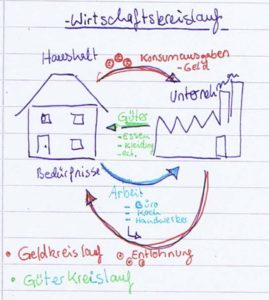 -Wirtschaftskreislauf-
Haushalt
Konsumausgaben
-Geld
Unterneh
Güter
-Essen
-Kleidung
-ect.
Bedürfnisse
Arbeit
-Büro
-Koch
-Handwerker
Entlohnung
• Geldkreislauf
• Güterkreislauf